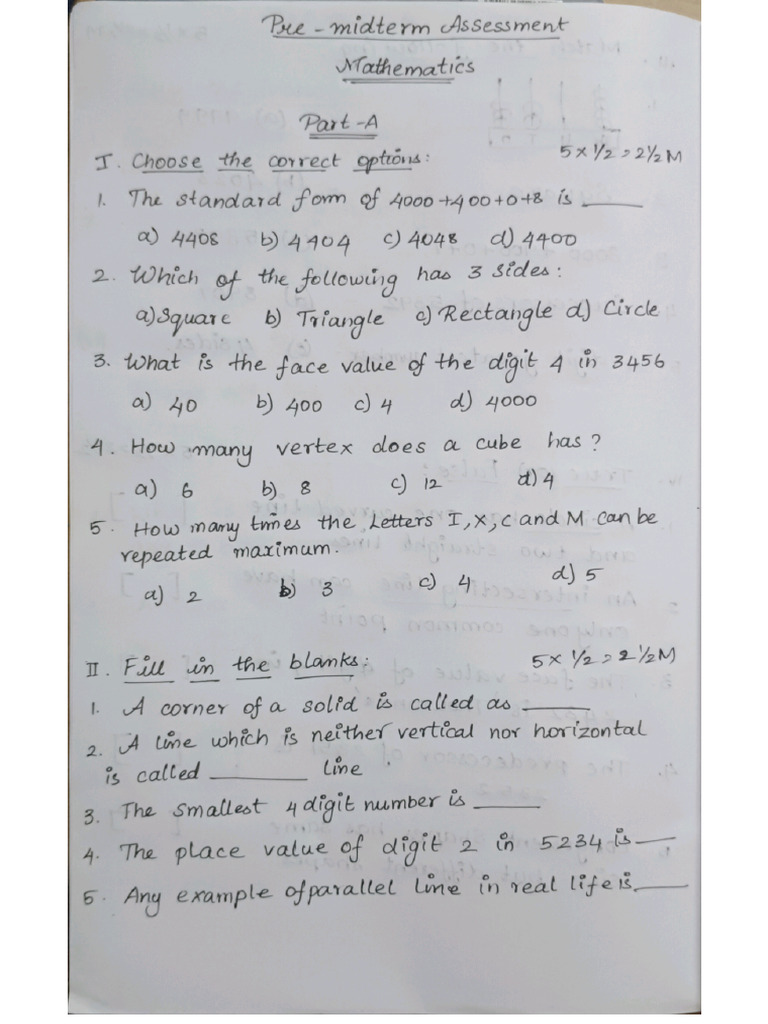 Pre - midterm Assessment
Mathematics
Part-A
I. Choose the correct options: 5 x 1/2 = 2 1/2 M
1. The standard form of 4000+400+0+8 is ____
a) 4408 b) 4404 c) 4048 d) 4400
2. Which of the following has 3 sides:
a) Square b) Triangle c) Rectangle d) Circle
3. What is the face value of the digit 4 in 3456
a) 40 b) 400 c) 4 d) 4000
4. How many vertex does a cube has?
a) 6 b) 8 c) 12 d) 4
5. How many times the Letters I, X, C and M can be
repeated maximum.
a) 2 b) 3 c) 4 d) 5
II. Fill in the blanks: 5 x 1/2 = 2 1/2 M
1. A corner of a solid is called as ____
2. A line which is neither vertical nor horizontal
is called ____ line.
3. The smallest 4 digit number is ____
4. The place value of digit 2 in 5234 is ____
5. Any example of parallel line in real life is ____